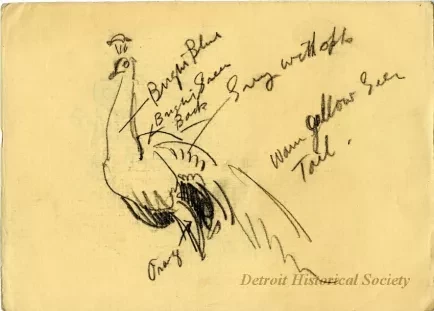 Bright Blue
Bright Green
Back
Gray with
Warm yellow Green
Tail.
Orang
Detroit Historical Society